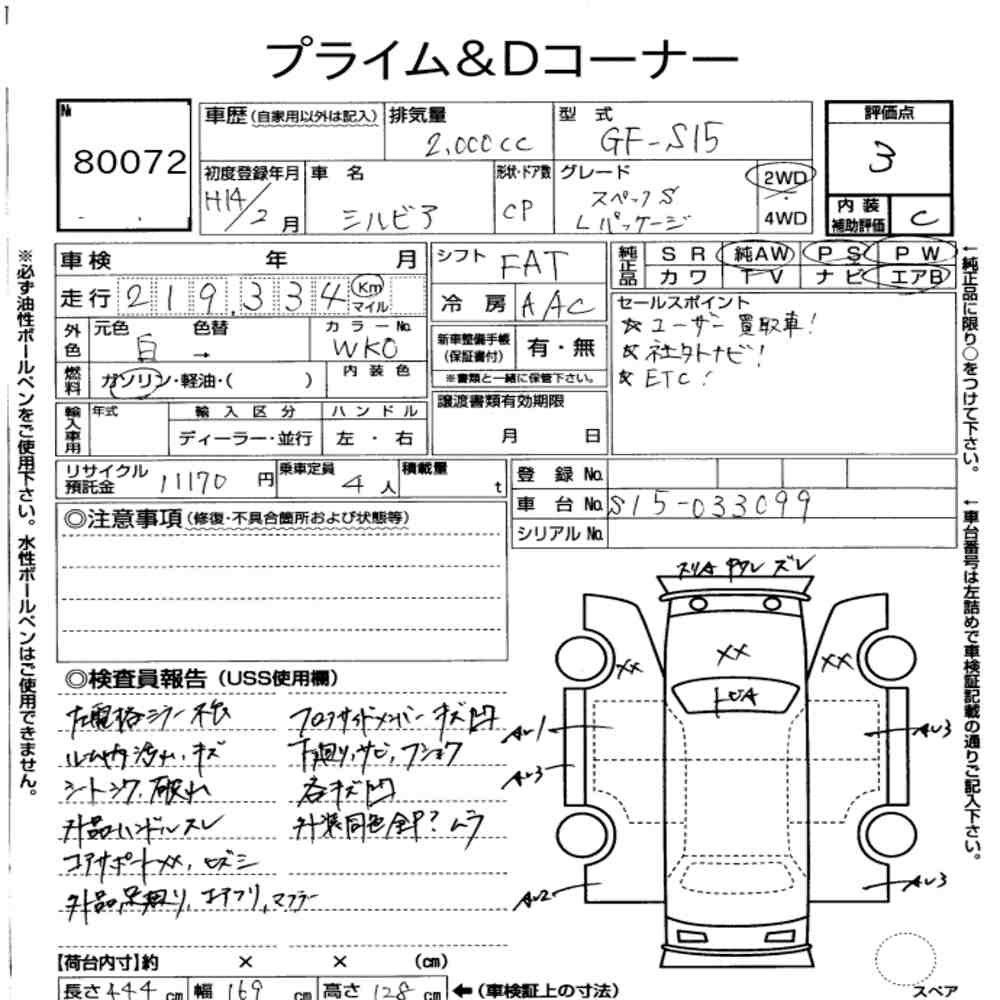 プライム&Dコーナー
№ 80072
車歴(自家用以外は記入) 排気量 2,000cc 型式 GF-S15 評価点 3
初度登録年月 H14/2月 車名 シルビア 形状・ドア数 CP グレード スペックS Lパッケージ 2WD 4WD 内装補助評価 C
車検 年 月
走行 219,334 Km マイル
外色 元色 白 色替 → カラーNo. WK0
燃料 ガソリン・軽油・( ) 内装色
輸入車用 年式 輸入区分 ハンドル
ディーラー・並行 左・右
リサイクル預託金 11170円 乗車定員 4人 積載量 t
シフト FAT
冷房 AAC
新車整備手帳(保証書付) 有・無
※書類と一緒に保管下さい。
譲渡書類有効期限
月 日
純正品 SR 純AW PS PW
カワ TV ナビ エアB
セールスポイント
☆ユーザー買取車!
☆社外ナビ!
☆ETC!
登録No.
車台No. S15-033099
シリアルNo.
◎注意事項(修復・不具合箇所および状態等)
◎検査員報告(USS使用欄)
左電格ミラー不良
ルーム内汚れ,キズ
シートシワ,破れ
外品ハンドルスレ
コアサポートXX,
外品足廻り,エアクリ,マフラー
フロアサイドメンバーキズ凹
下廻り,サビ,フショク
各キズ凹
外装同色全P?ムラ
ズレ
XX
XX
XX
AU1
AU3
AU3
AU2
AU3
スペア
【荷台内寸】約 × × (cm)
長さ444cm 幅169cm 高さ128cm ←(車検証上の寸法)
※必ず油性ボールペンをご使用下さい。水性ボールペンはご使用できません。
←純正品に限り○をつけて下さい。
←車台番号は左詰めで車検証記載の通りご記入下さい。